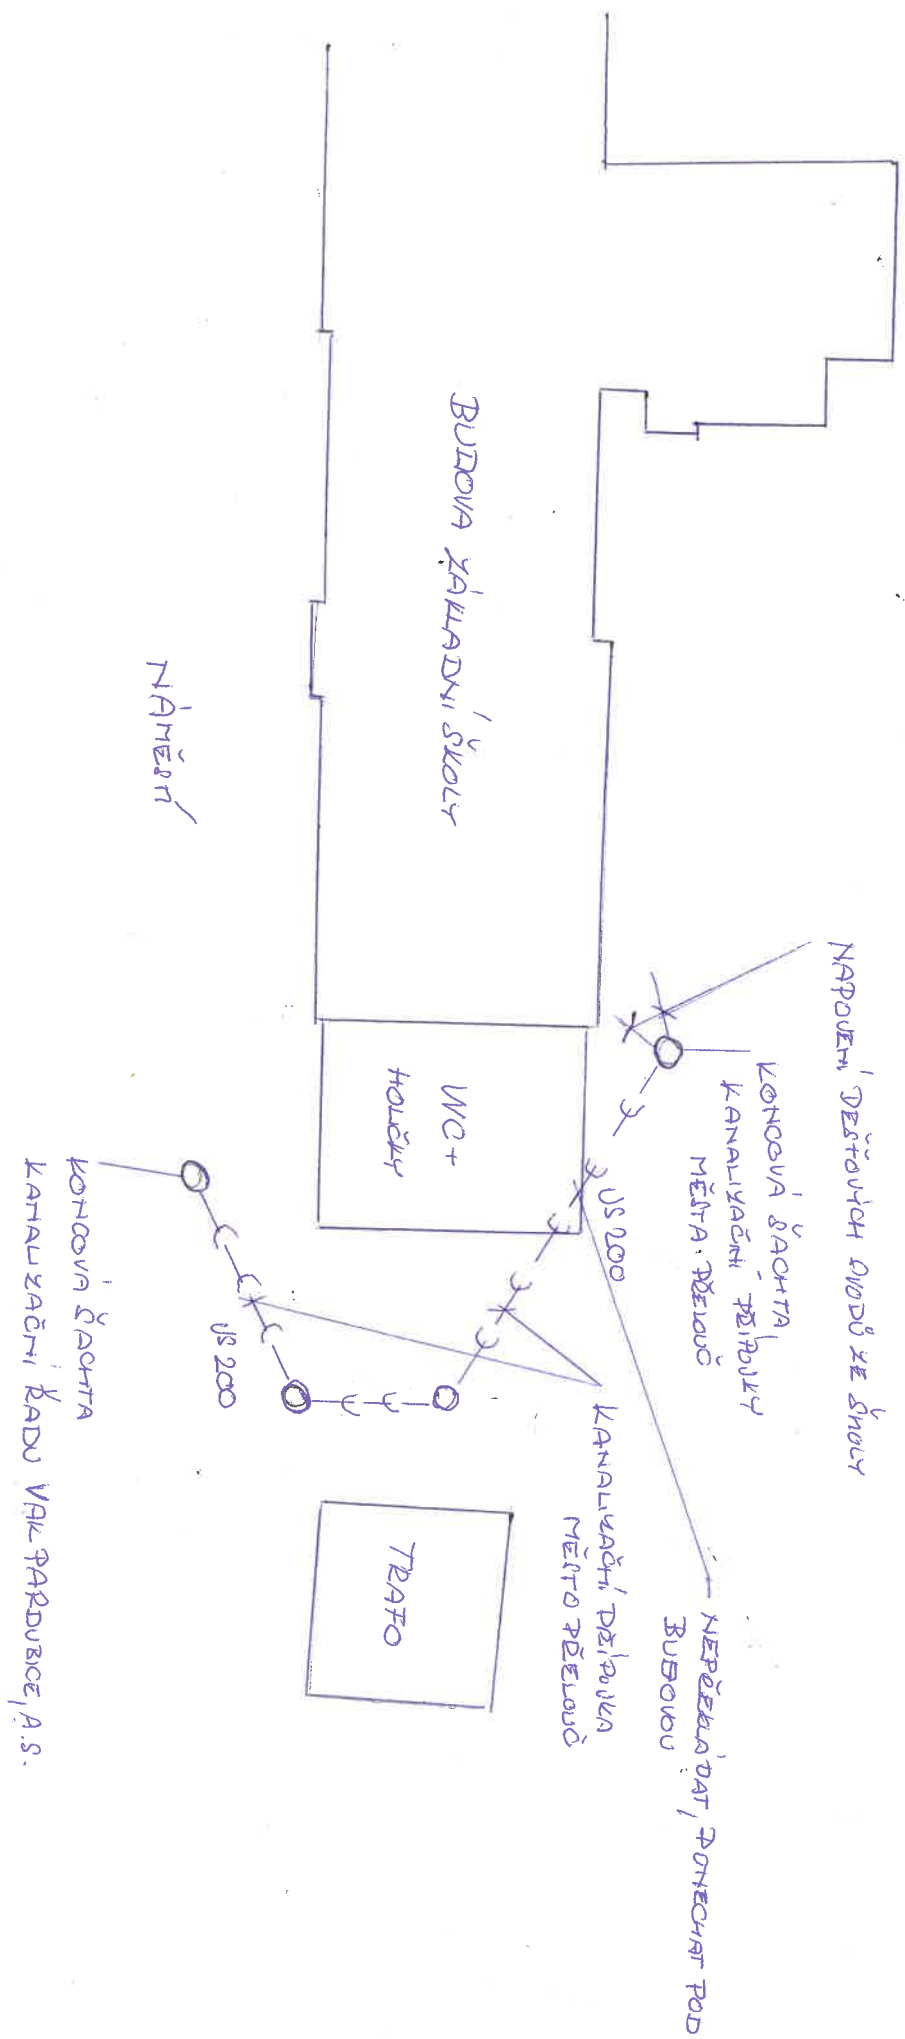 NAPOJENÍ DEŠŤOVÝCH SVODŮ ZE ŠKOLY
KONCOVÁ ŠACHTA
KANALIZAČNÍ PŘÍPOJKY
MĚSTA PŘELOUČ
NEPŘEKLÁDAT, PONECHAT POD
BUDOVOU
KANALIZAČNÍ PŘÍPOJKA
MĚSTO PŘELOUČ
BUDOVA ZÁKLADNÍ ŠKOLY
WC +
HOLIČKY
200
TRAFO
NÁMĚSTÍ
200
KONCOVÁ ŠACHTA
KANALIZAČNÍ ŘADU VAK PARDUBICE, A.S.